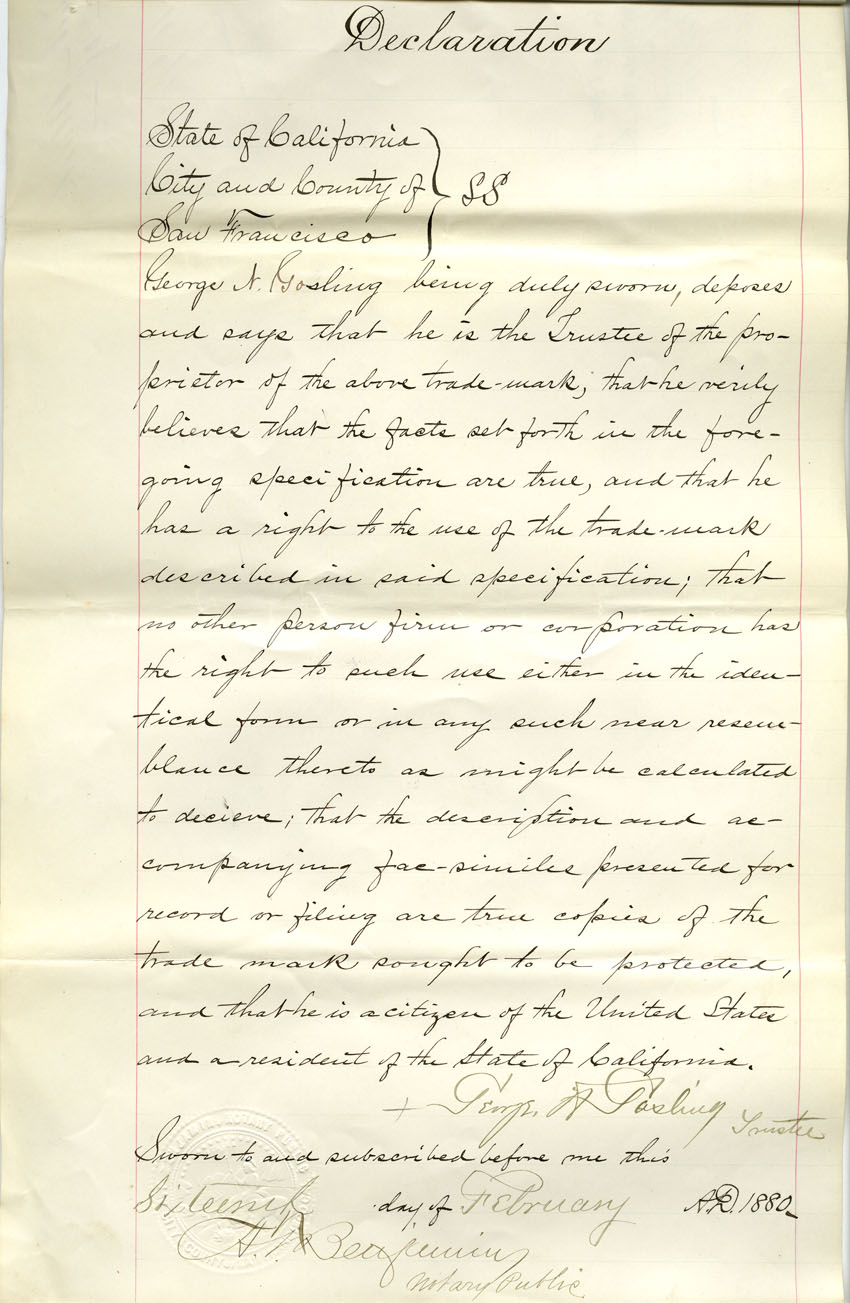 Declaration
State of California
City and County of } SS
San Francisco
George N. Gosling being duly sworn, deposes
and says that he is the Trustee of the pro-
prietor of the above trade-mark; that he verily
believes that the facts set forth in the fore-
going specification are true, and that he
has a right to the use of the trade-mark
described in said specification; that
no other person firm or corporation has
the right to such use either in the iden-
tical form or in any such near resem-
blance thereto as might be calculated
to decieve; that the description and ac-
companying fac-similes presented for
record or filing are true copies of the
trade mark sought to be protected,
and that he is a citizen of the United States
and a resident of the State of California.
+ George N Gosling
Trustee
Sworn to and subscribed before me this
Sixteenth day of February A.D. 1880.
Benjamin
Notary Public